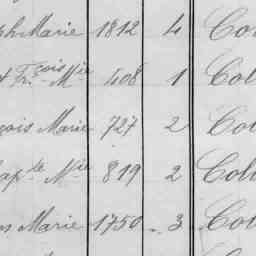 ph Marie 1812 4 Co
t Fr.çois Mie 408 1 Col
çois Marie 727 2 Col
Bapte Nie 819 2 Col
s Marie 1750 3 Col